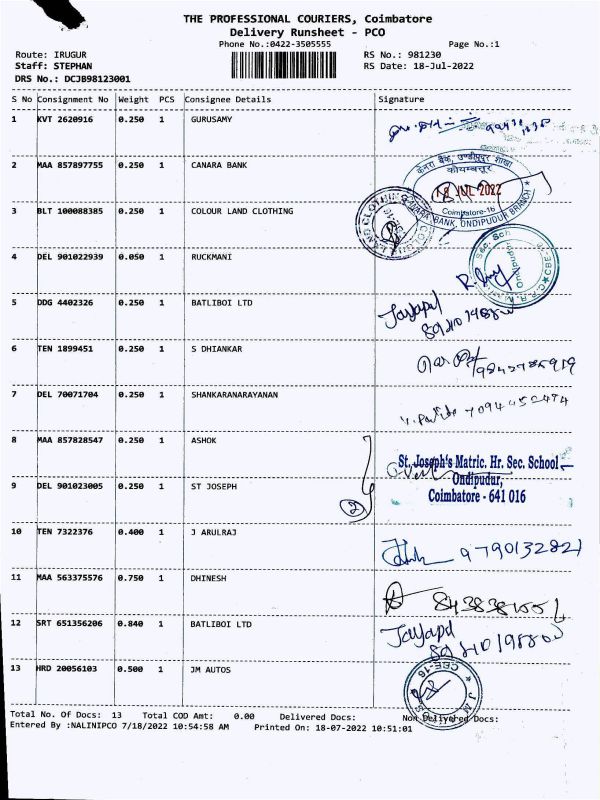 THE PROFESSIONAL COURIERS, Coimbatore
Delivery Runsheet - PCO
Phone No.:0422-3505555 Page No.:1
Route: IRUGUR RS No.: 981230
Staff: STEPHAN RS Date: 18-Jul-2022
DRS No.: DCJB98123001
S No Consignment No Weight PCS Consignee Details Signature
1 KVT 2620916 0.250 1 GURUSAMY
2 MAA 857897755 0.250 1 CANARA BANK
केनरा बैंक, उण्डीपुदूर शाखा
कोयम्बत्तूर
18 JUL 2022
Coimbatore-16
CANARA BANK, ONDIPUDUR BRANCH
3 BLT 100088385 0.250 1 COLOUR LAND CLOTHING
COLOUR LAND CLOTHING
4 DEL 901022939 0.050 1 RUCKMANI
5 DDG 4402326 0.250 1 BATLIBOI LTD
Jayapal
6 TEN 1899451 0.250 1 S DHIANKAR
7 DEL 70071704 0.250 1 SHANKARANARAYANAN
8 MAA 857828547 0.250 1 ASHOK
St. Joseph's Matric. Hr. Sec. School
Ondipudur,
Coimbatore - 641 016
9 DEL 901023005 0.250 1 ST JOSEPH
2
10 TEN 7322376 0.400 1 J ARULRAJ
9790132821
11 MAA 563375576 0.750 1 DHINESH
12 SRT 651356206 0.840 1 BATLIBOI LTD
Jayapal
13 HRD 20056103 0.500 1 JM AUTOS
CBE-16
Total No. Of Docs: 13 Total COD Amt: 0.00 Delivered Docs: Non Delivered Docs:
Entered By :NALINIPCO 7/18/2022 10:54:58 AM Printed On: 18-07-2022 10:51:01